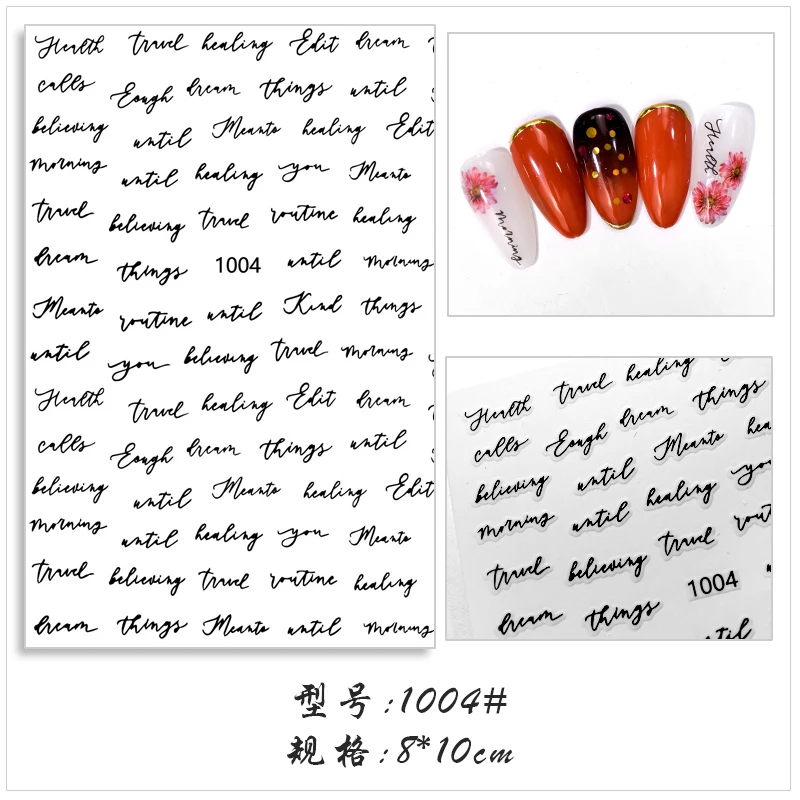 Health travel healing Edit dream
calls Eough dream things until
believing until Meanto healing Edit
morning until healing you Meanto
travel believing travel routine healing
dream things 1004 until morning
Meanto routine until Kind things
until you believing travel morning
Health travel healing Edit dream
calls Eough dream things until
believing until Meanto healing Edit
morning until healing you Meanto
travel believing travel routine healing
dream things Meanto until morning
Health
morning
Health travel healing
calls Eough dream things
believing until Meanto hea
morning until healing you
travel believing travel rout
dream things 1004
til
型号:1004#
规格:8*10cm